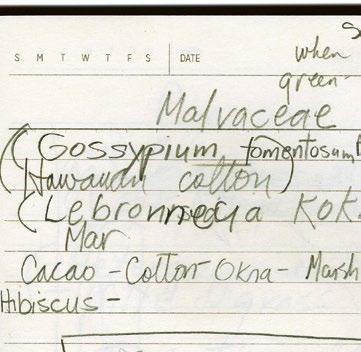 S M T W T F S DATE
when
green-
Malvaceae
(Gossypium tomentosum
(Hawaiian cotton)
(Lebronnecia Kok
Mar
Cacao - Cotton - Okra - Marsh
Hibiscus -